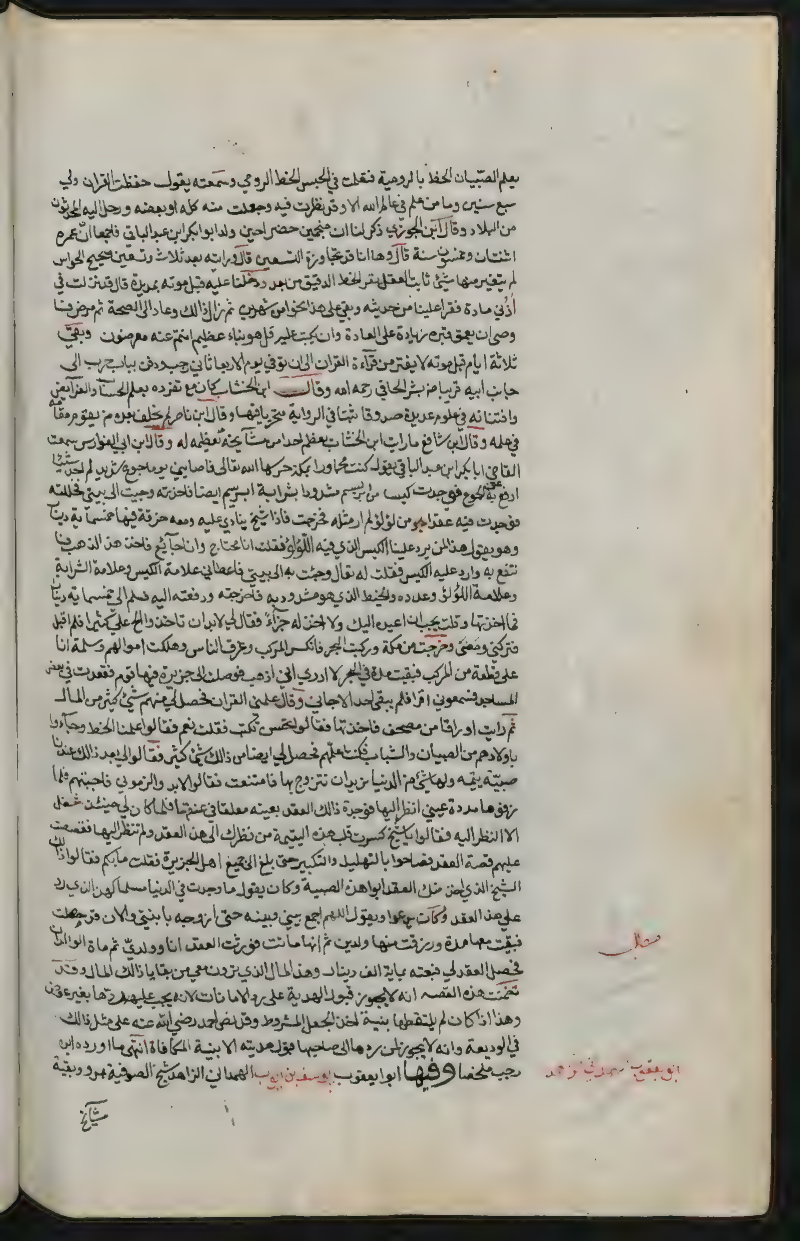 يعلم الصبيان الخط بالرومية فتعلمت في الحبس الخط الرومي وسمعته يقول حفظت القران ولي
سبع سنين وما من علم في عالم الله الا وقد نظرت فيه وحصلت منه كله او بعضه ورحل اليه المحدثون
من البلاد وقال ابن الجوزي ذكر لنا ان منجمين حضرا حين ولد ابو بكر ابن عبد الباقي فاجمعا ان عمره
اثنتان وخمسون سنة قال وها انا قد تجاوزة التسعين قال ورايته بعد ثلاث وتسعين صحيح الحواس
لم يتغير منها شيئ ثابت العقل يقر الخط الدقيق من بعد ودخلنا عليه قبل موته بمديدة قال قد نزلت في
أذني مادة فقرا علينا من حديثه وبقي على هذا نحوا من شهرين ثم زال ذالك وعاد الى الصحة ثم مرض فـ
وصى ان يعمق قبره زيادة على العادة وان يكتب عليه قل هو نباء عظيم انتم عنه معرضون وبقي
ثلاثة ايام قبل موته لا يفتر من قرآءة القران الى ان توفي يوم الاربعا ثاني رجب ودفن بباب حرب الى
جانب ابيه قريبا من بشر الحافي رحمه الله وقال ابن الخشاب كان مع تفرده بعلم الحساب والفرآيض
وافتنانه في علوم عديدة صدوقا ثبتا في الرواية متحريا فيها وقال ابن ناصر لم يخلف بعده من يقوم مقامه
في علمه وقال ابن شافع مارايت ابن الخشاب يعظم احدا من مشآيخه تعظيمه له وقال ابن ابي الفوارس سمعت
القاضي ابا بكر ابن عبد الباقي يقول كنت مجاورا بمكة حرسها الله تعالى فاصابني يوما جوع شديد لم اجد شيئا
ادفع به عني الجوع فوجدت كيسا من ابريسم مشدودا بشرابة ابريسم ايضا فاخذته وجيت الى بيتي فحللته
فوجدت فيه عقدا من لؤلؤ لم ار مثله فخرجت فاذا شيخ ينادي عليه ومعه خرقة فيها خمسماية دينار
وهو يقول هذا لمن يرد علينا الكيس الذي فيه اللؤلؤ فقلت انا محتاج وانا جآيع فاخذ هذا الذهب فا
نتفع به وارد عليه الكيس فقلت له تعال وجئت به الى بيتي فاعطاني علامة الكيس وعلامة الشرابة
وعلامة اللؤلؤ وعدده والخيط الذي هو مشدود به فاخرجته ودفعته اليه فسلم الي خمسماية دينار
فما اخذتها وقلت يجب ان اعيده اليك ولا اخذ له جزآء فقال لي لا بد ان تاخذ والح علي كثيرا فلم اقبل
فتركني ومضى وخرجت من مكة وركبت البحر فانكسر المركب وغرق الناس وهلكت اموالهم وسلمة انا
على قطعة من المركب فبقيت مدة في البحر لا ادري اين اذهب فوصلت الى جزيرة فيها قوم فقعدت في بعض
المساجد فسمعوني اقرا فلم يبقى احد الا جاني وقال علمني القران فحصل لي منهم شيئ كثير من المال
ثم رايت اوراقا من مصحف فاخذتها فقالوا تحسن تكتب فقلت نعم فقالوا علمنا الخط وجآءوا
باولادهم من الصبيان والشباب فكنت اعلمهم فحصل لي ايضا من ذالك شيئ كثير فقالوا لي بعد ذالك عندنا
صبية يتيمة ولها شيئ من الدنيا نريد ان تتزوج بها فامتنعت فقالوا لا بد والزموني فاجبتهم فلما
زفوها مددة عيني انظر اليها فوجدة ذالك العقد بعينه معلقا في عنقها فما كان لي حينئذ شغل
الا النظر اليه فقالوا يا شيخ كسرت قلب هذه اليتيمة من نظرك الى هذا العقد ولم تنظر اليها فقصصت
عليهم قصة العقد فصاحوا بالتهليل والتكبير حتى بلغ الى جميع اهل الجزيرة فقلت مابكم فقالوا ذالك
الشيخ الذي اخذ منك العقد ابو هذه الصبية وكان يقول ما وجدت في الدنيا مسلما كهذا الذي رد
علي هذا العقد وكان يدعوا ويقول اللهم اجمع بيني وبينه حتى ازوجه بابنتي والان قد حصلت
فبقيت معها مدة ورزقت منها ولدين ثم انها ماتت فورثت العقد انا وولدي ثم ماة الولدان
فحصل العقد لي فبعته بماية الف دينار وهذا المال الذي ترون معي من بقايا ذالك المال وقد
تضمنت هذه القصه انه لا يجوز قبول الهدية على رد الامانات لانه يجب عليه ردها بغير عوض
وهذا اذا كان لم يلتقطها بنية اخذ الجعل المشروط وقد نص احمد رضي الله عنه على مثل ذالك
في الوديعة وانه لا يجوز لمن ردها الى صاحبها قبول هديته الا بنية المكافاة انتهى ما اورده ابن
رجب ملخصا وفيها ابو يعقوب يوسف بن ايوب الهمداني الزاهد شيخ الصوفية بمرو وبقية
مشآيخ
مطلب
ابو يعقوب